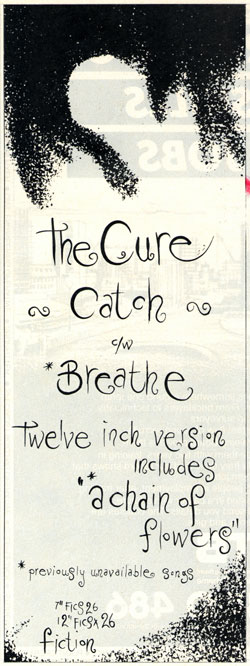 The Cure
~ Catch ~
c/w
*Breathe
Twelve inch version
includes
*"a chain of
flowers"
*previously unavailable songs
7" FICS 26
12" FICSX 26
fiction